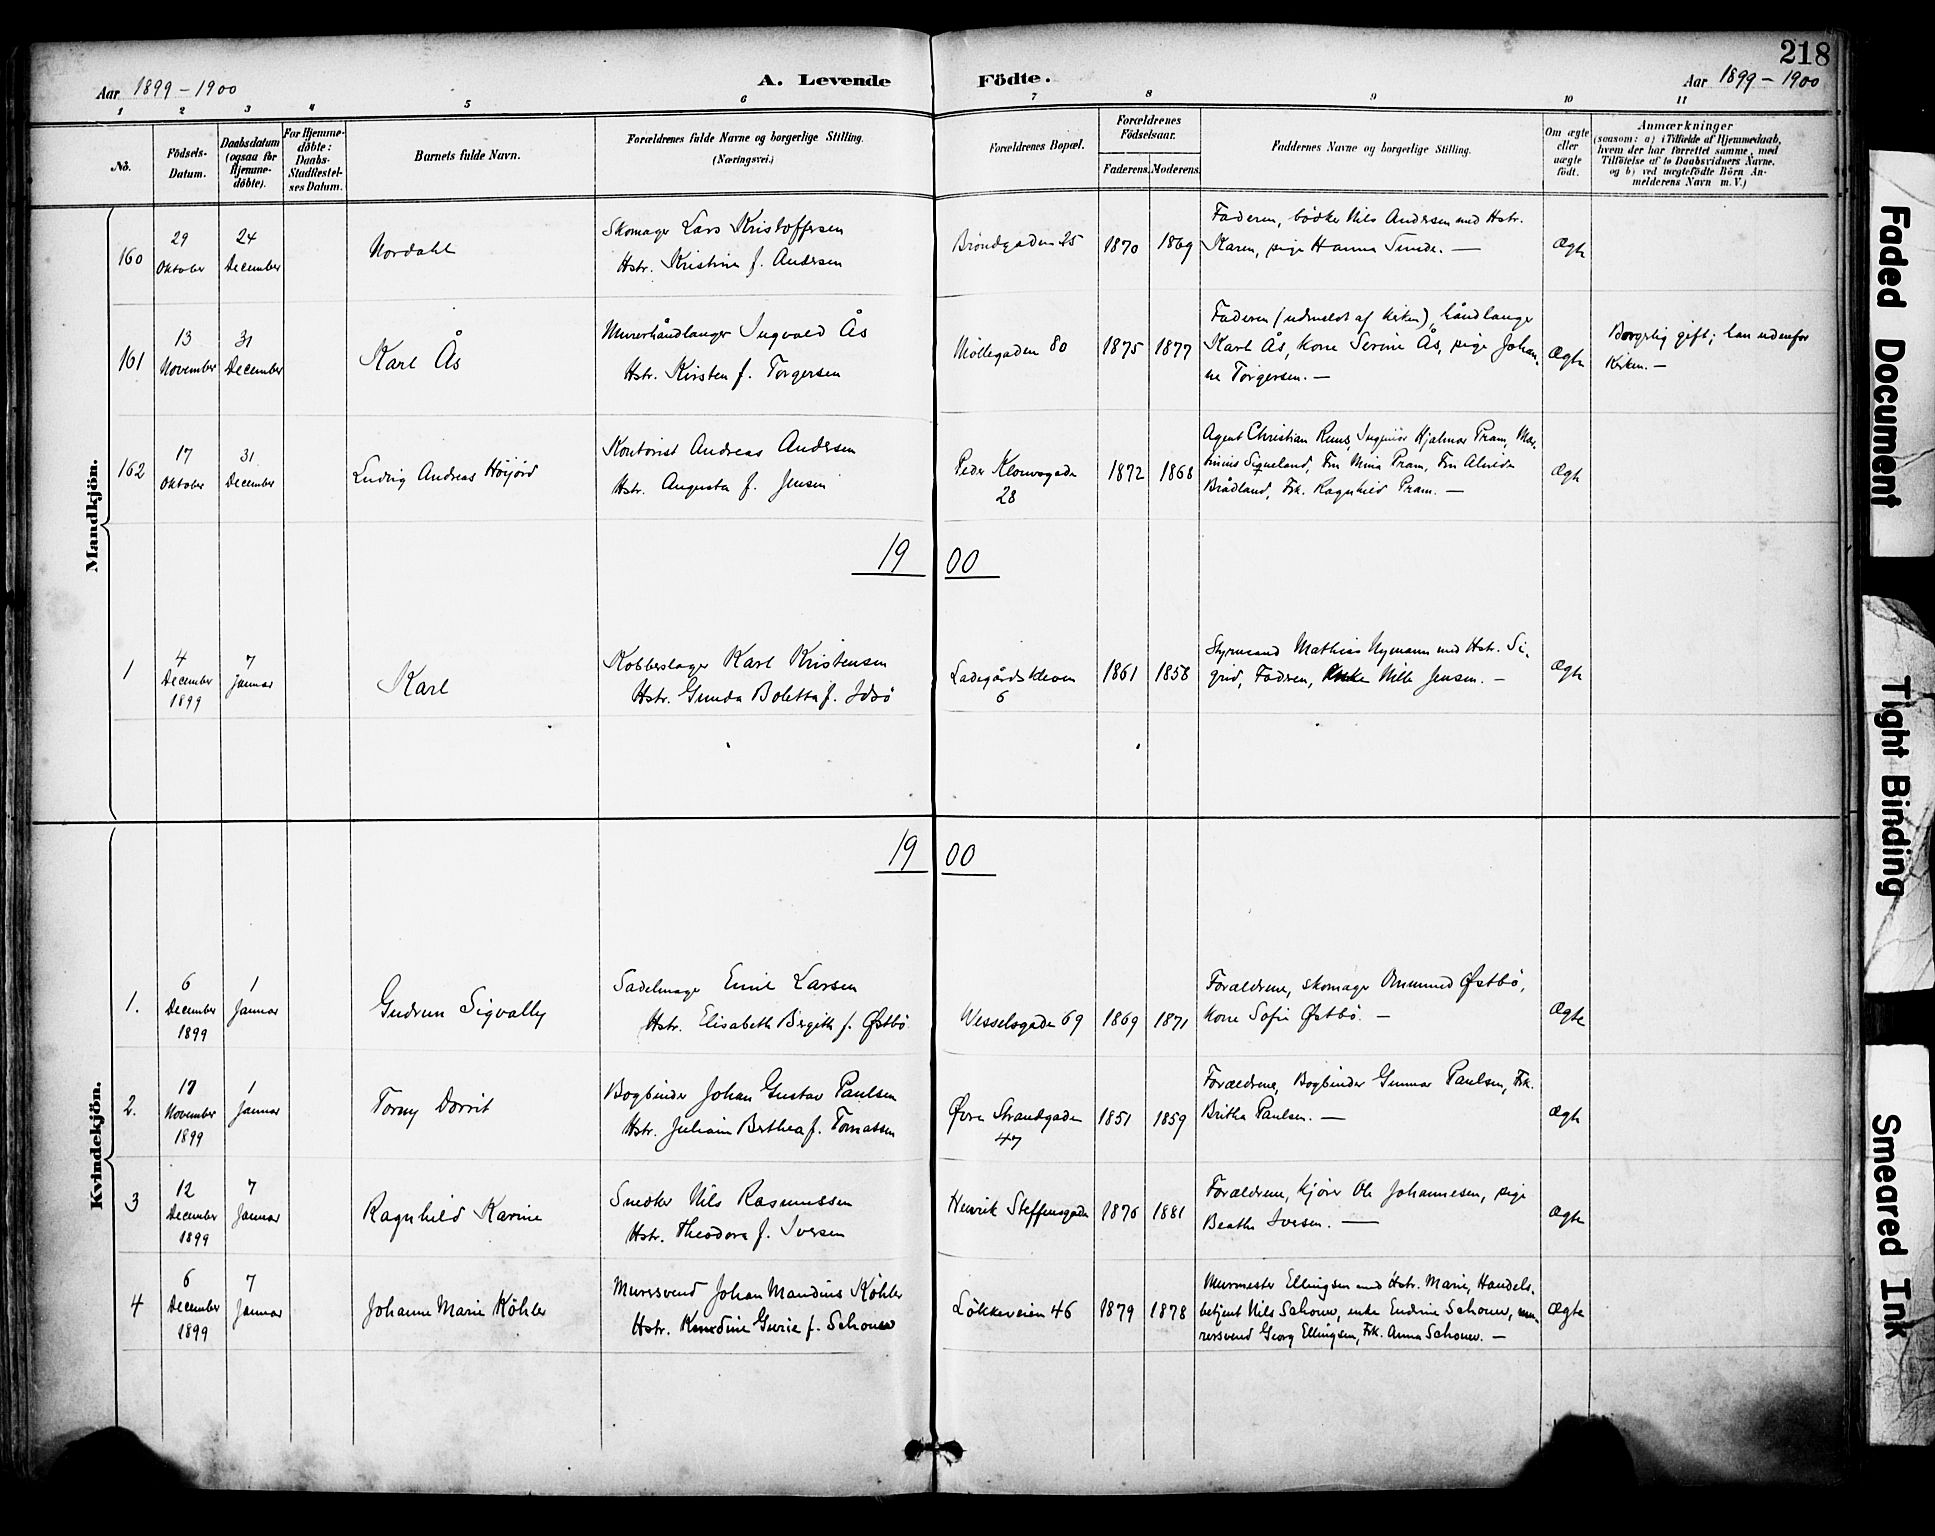 218
Aar 1899-1900
A. Levende Födte.
Aar 1899-1900
1 2 3 4 5 6 7 8 9 10 11
No.
Födsels-Datum.
Daabsdatum (ogsaa for Hjemme-döbte).
For Hjemme-döbte: Daabs-Stadfestel-ses Datum.
Barnets fulde Navn.
Forældrenes fulde Navne og borgerlige Stilling. (Næringsvei.)
Forældrenes Bopæl.
Forældrenes Födselsaar.
Faderens. Moderens.
Faddernes Navne og borgerlige Stilling.
Om ægte eller uægte födt.
Anmærkninger
(saasom: a) i Tilfælde af Hjemmedaab,
hvem der har forrettet samme, med
Tilföielse af to Daabsvidners Navne,
og b) ved uægtefödte Börn An-
melderens Navn m. V.)
Mandkjön.
160
29 Oktober
24 December
Nordahl
Skomager Lars Kristoffersen
Hstr. Kristine f. Andersen
Bröndgaden 25
1870
1869
Faderen, bödker Nils Andersen med Hstr.
Karen, pige Hanna Tunde. —
Ægte
161
13 November
31 December
Karl Ås
Murerhåndlanger Ingvald Ås
Hstr. Kirsten f. Torgersen
Möllegaden 80
1875
1877
Faderen (udmeldt af kirken), håndlanger
Karl Ås, kone Serine Ås, pige Johan-
ne Torgersen. —
Ægte
Borgerlig gift; han udenfor
Kirken. —
162
17 Oktober
31 December
Ludvig Andreas Höijord
Kontorist Andreas Andersen
Hstr. Augusta f. Jensen
Peder Klowsgade
28
1872
1868
Agent Christian Ruus, Ingeniör Hjalmar Pram, Mar-
tinius Sigveland, Fru Mina Pram, Fru Alvida
Brådland, Frk. Ragnhild Pram. —
Ægte
1900
1
4 December 1899
7 Januar
Karl
Kobberslager Karl Kristensen
Hstr. Gunda Boletta f. Idsö
Ladegårdskleven
6
1861
1858
Styrmand Mathias Nymann med Hstr. Si-
grid, Faderen, Nille Jensen. —
Ægte
Kvindekjön.
1900
1.
6 December 1899
1 Januar
Gudrun Sigvally
Sadelmager Emil Larsen
Hstr. Elisabeth Birgith f. Østbö
Wesselsgaden 69
1869
1871
Forældrene, skomager Ommund Østbö,
kone Sofie Østbö. —
Ægte
2.
17 November 1899
1 Januar
Tormy Dorrit
Bogbinder Johan Gustav Paulsen
Hstr. Juliane Berthea f. Tomassen
Øvre Strandgaden
47
1851
1859
Forældrene, Bogbinder Gunnar Paulsen, Frk.
Britha Paulsen. —
Ægte
3
12 December 1899
7 Januar
Ragnhild Karine
Snedker Nils Rasmussen
Hstr. Theodora f. Iversen
Henrik Steffensgade
1876
1881
Forældrene, kjörer Ole Johannesen, pige
Beathe Iversen. —
Ægte
4
6 December 1899
7 Januar
Johanne Marie Köhler
Muresvend Johan Mandius Köhler
Hstr. Gurie f. Schouw
Lökkeveien 46
1879
1878
Murmester Ellingsen med Hstr. Marie, Handels-
betjent Nils Schouw, enke Endrine Schouw, mu-
rersvend Georg Ellingsen, Frk. Anna Schouw. —
Ægte
Faded Document
Tight Binding
Smeared Ink